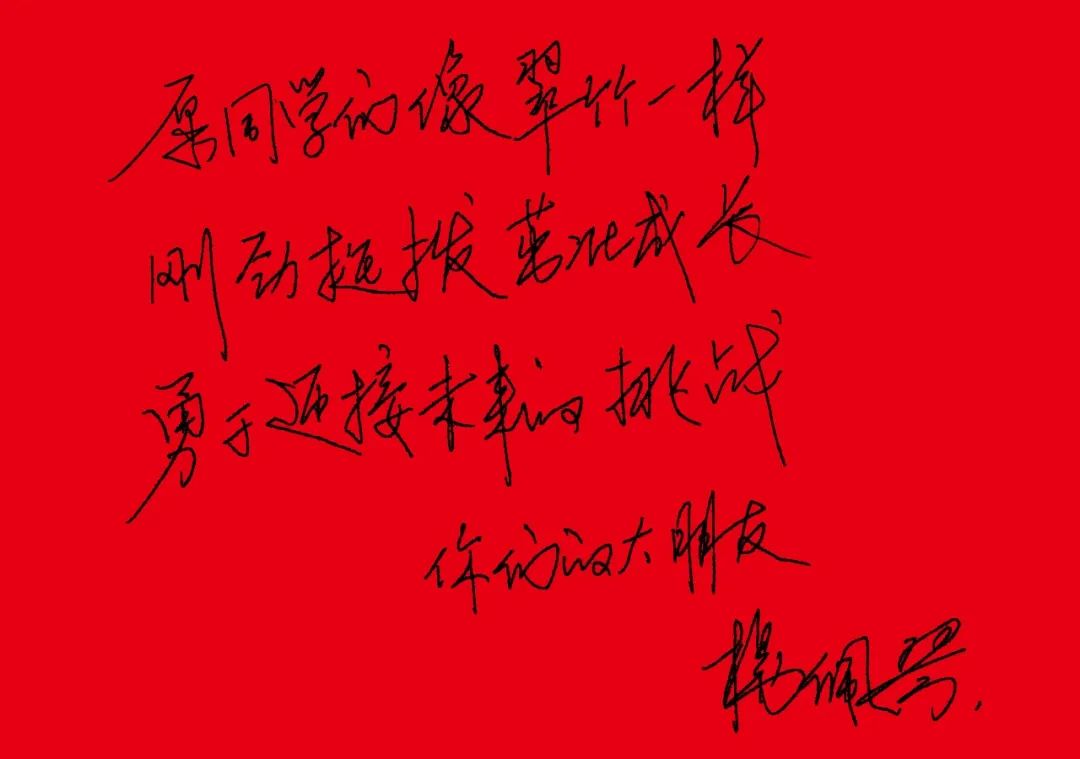 愿同学们像翠竹一样
刚劲挺拔茁壮成长
勇于迎接未来的挑战
你们的大朋友
杨佩